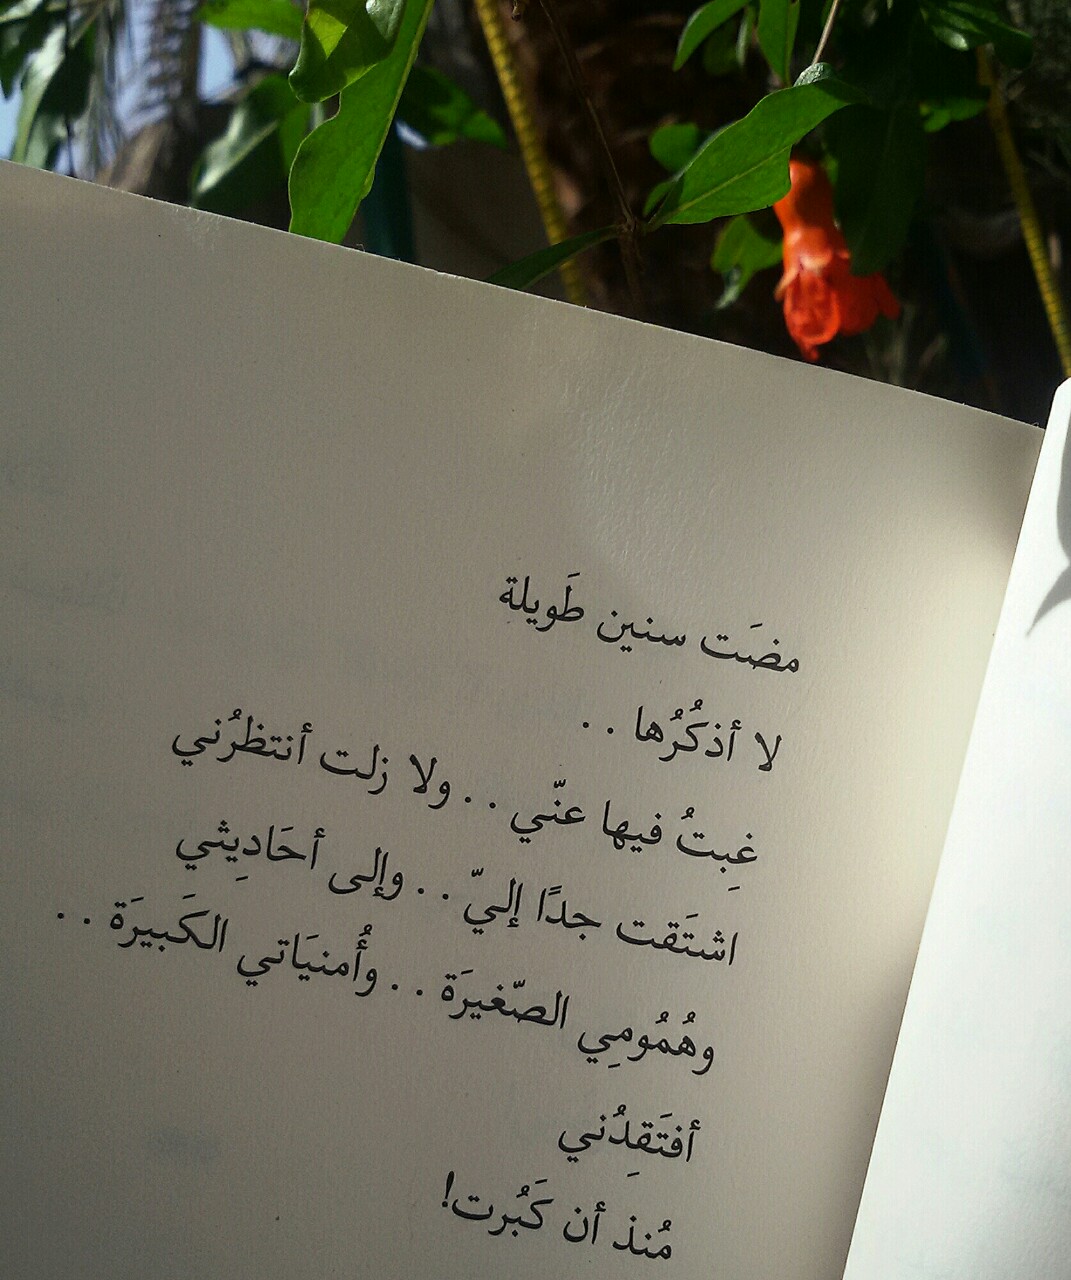 مضَت سنين طَويلة
لا أذكُرُها . .
غِبتُ فيها عنّي . . ولا زلت أنتظرُني
اشتَقت جدًا إليّ . . وإلى أحَادِيثي
وهُمُومِي الصّغيرَة . . وأُمنيَاتي الكَبيرَة . .
أفتَقِدُني
مُنذ أن كَبُرت!